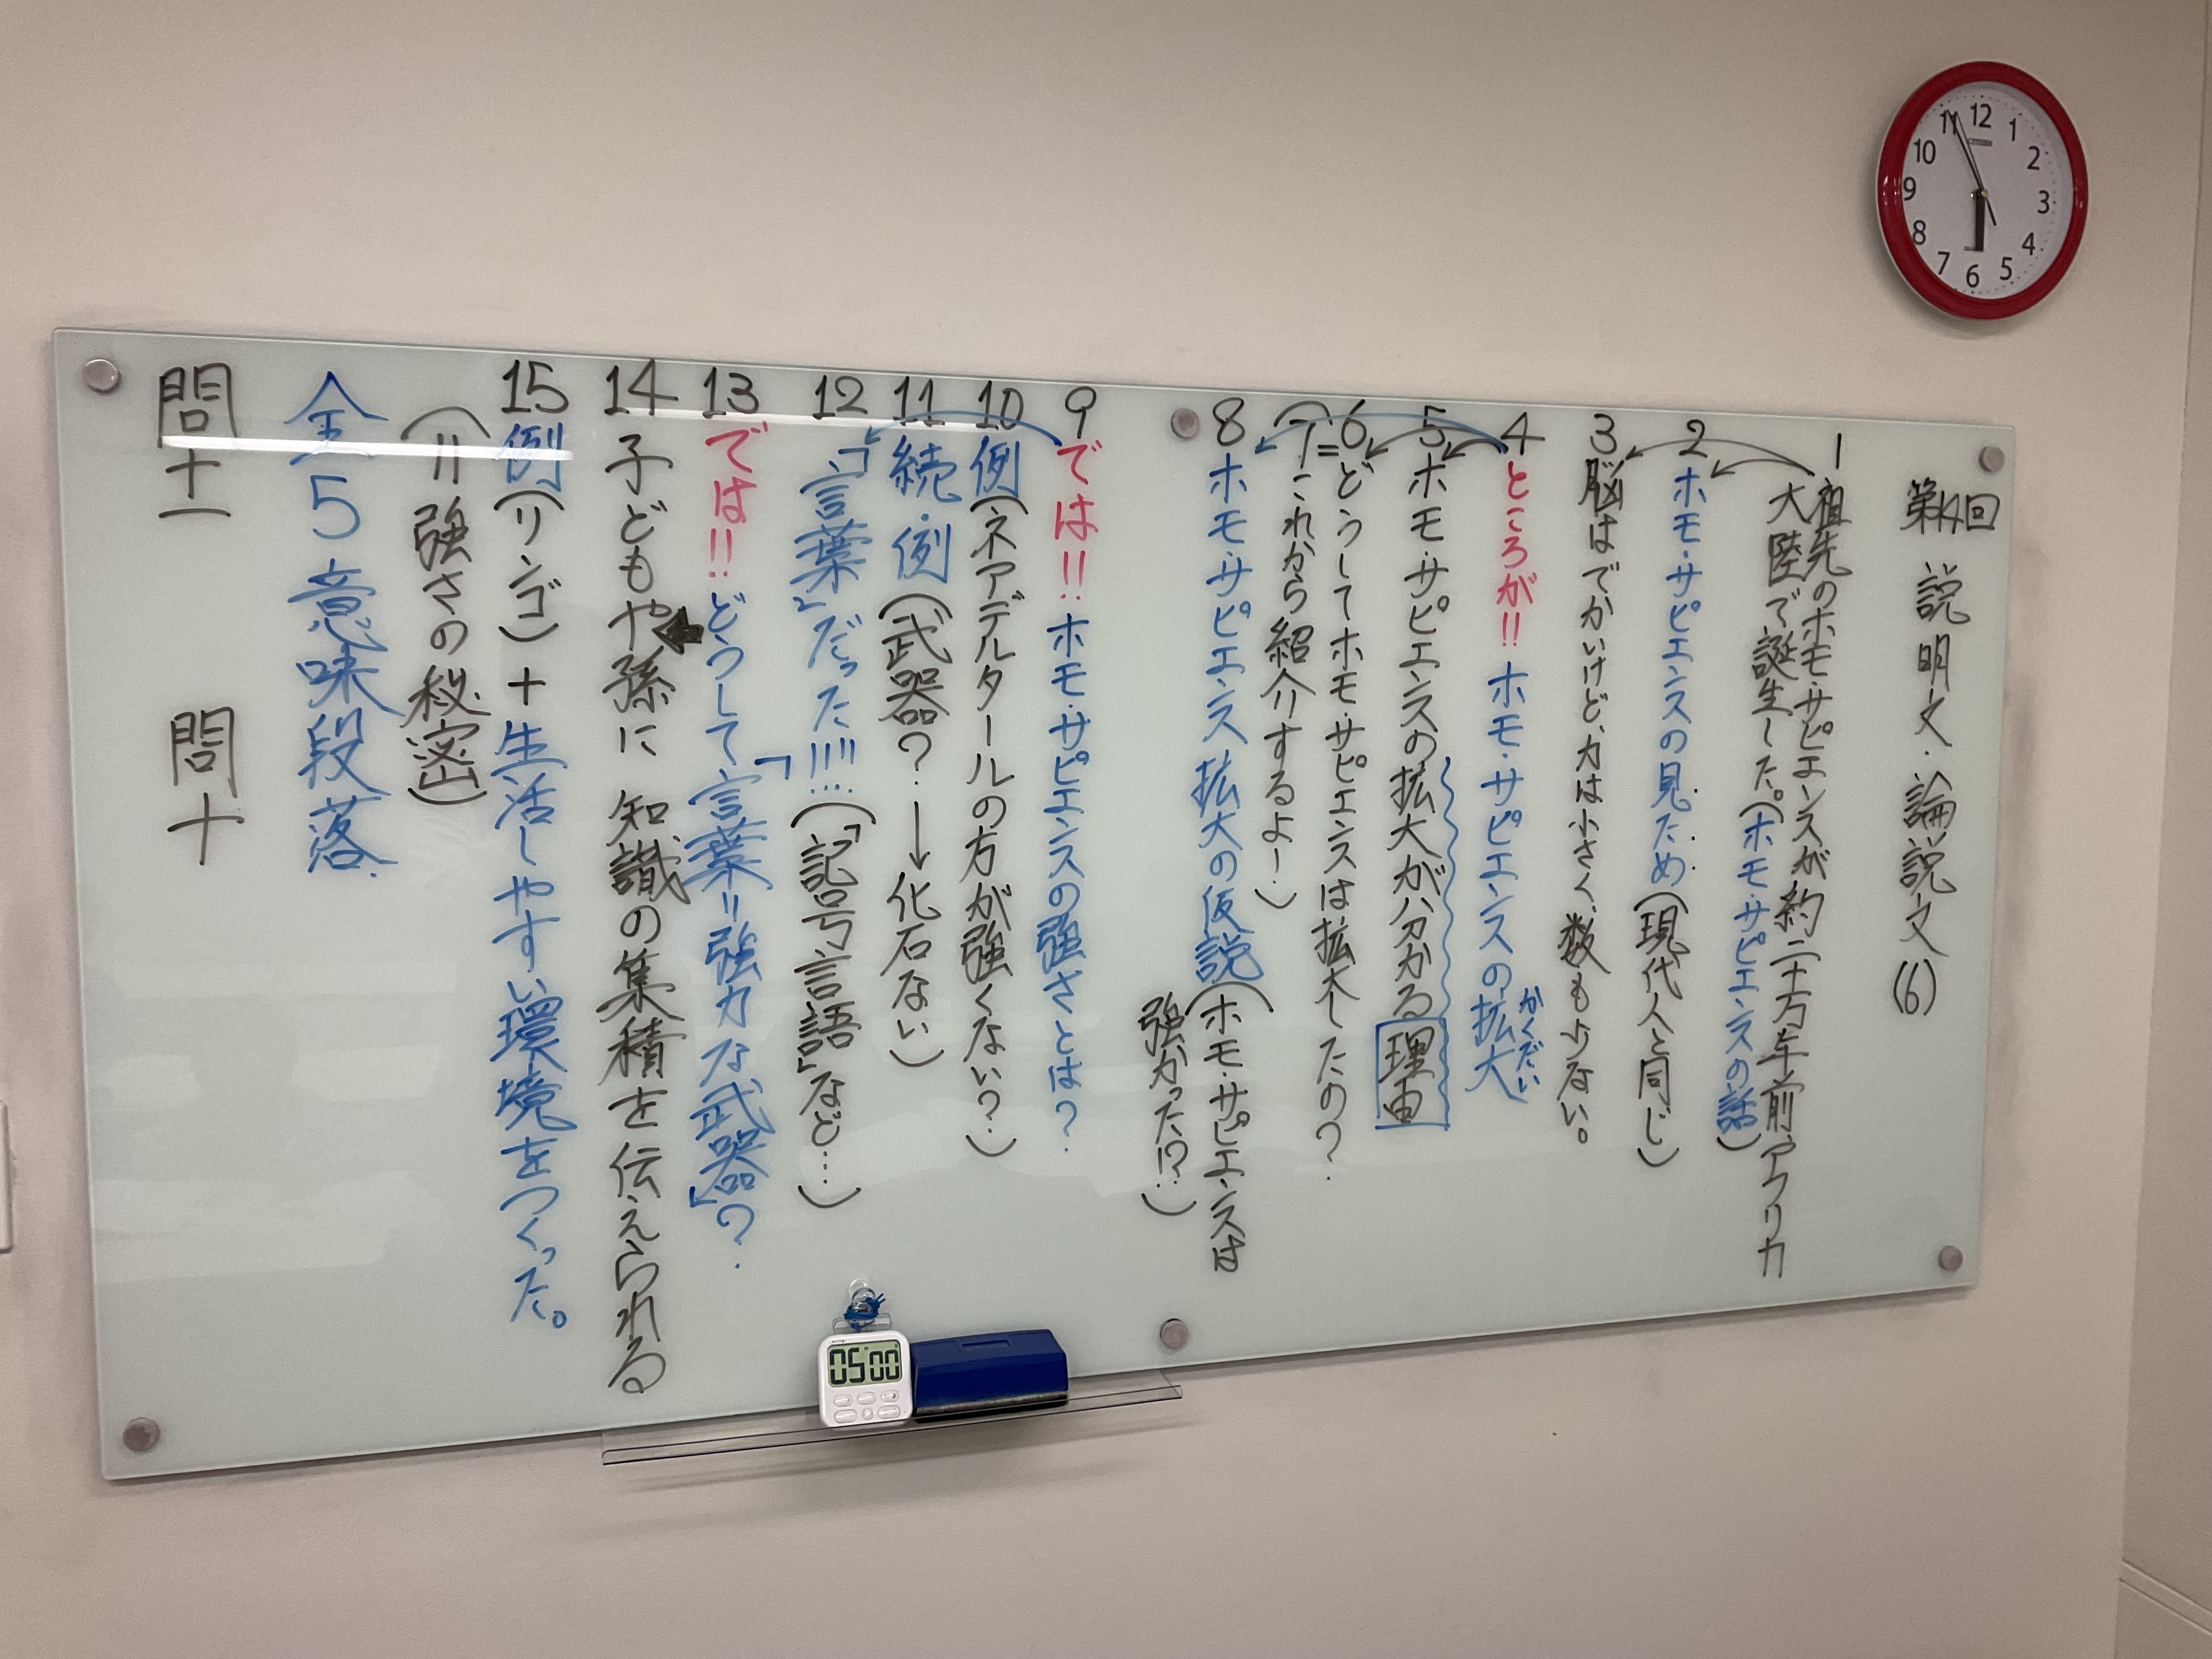 第14回 説明文・論説文(6)
1 祖先のホモ・サピエンスが約二十万年前アフリカ
大陸で誕生した。(ホモ・サピエンスの話)
2 ホモ・サピエンスの見ため(現代人と同じ)
3 脳はでかいけど、力は小さく、数も少ない。
4 ところが!! ホモ・サピエンスの拡大
かくだい
5 ホモ・サピエンスの拡大が分かる理由
6 どうしてホモ・サピエンスは拡大したの?
(7=これから紹介するよー)
8 ホモ・サピエンス拡大の仮説(ホモ・サピエンスは
強かった!?)
9 では!! ホモ・サピエンスの強さとは?
10 例(ネアデルタールの方が強くない?)
11 続・例(武器?→化石ない)
12 「言葉」だった!!!!(「記号言語」など…)
13 では!! どうして「言葉=強力な武器」?
14 子どもや孫に知識の集積を伝えられる
15 例(リンゴ)+生活しやすい環境をつくった。
(=強さの秘密)
全5意味段落
問十一 問十
12
1
2
3
4
5
6
7
8
9
10
11
05 00